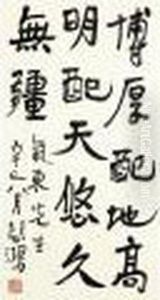 博厚配地高
明配天悠久
無疆
東先生
辛巳八月悲鴻